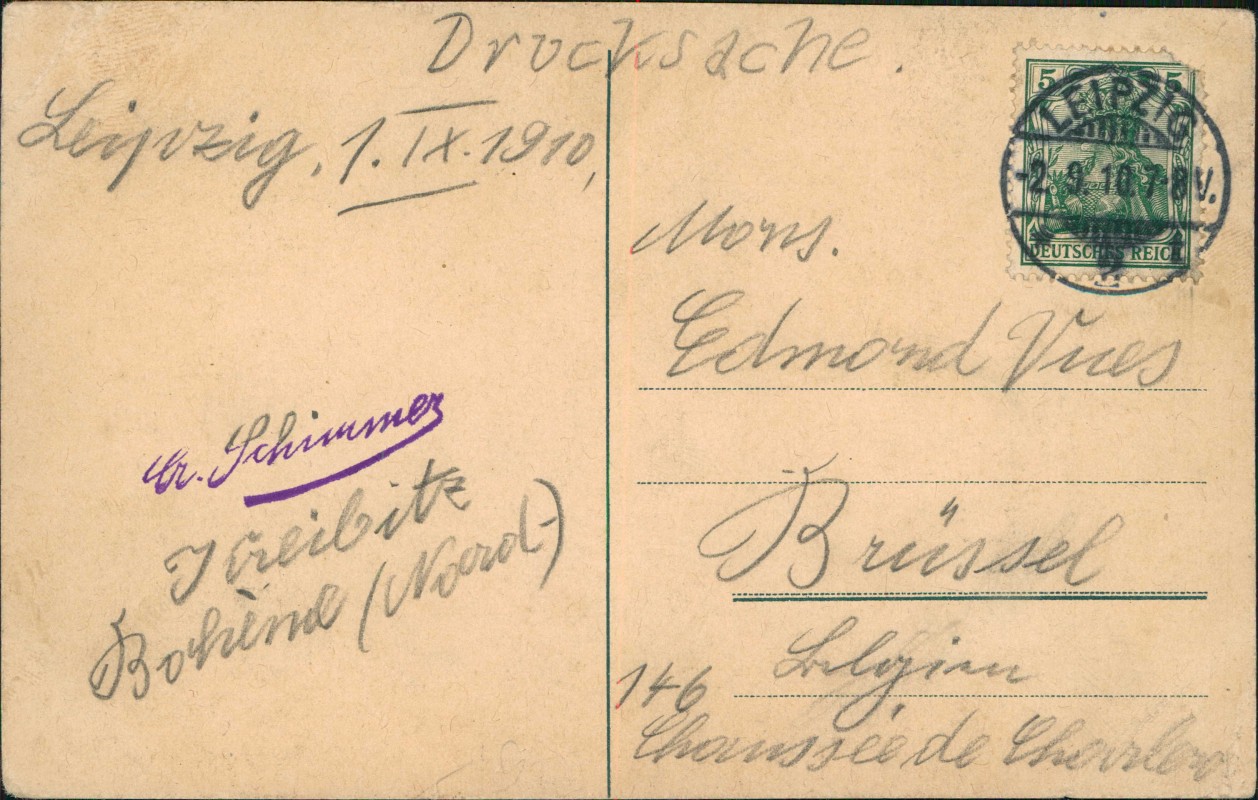 Drucksache.
Leipzig, 1. IX. 1910,
5 5
LEIPZIG
-2.9.10.7-8V.
DEUTSCHES REICH
Mons.
Edmond Vues
Schimmer
Kreibitz
Bohème (Nord-)
Brüssel
Belgien
146
Chaussée de Charleroi